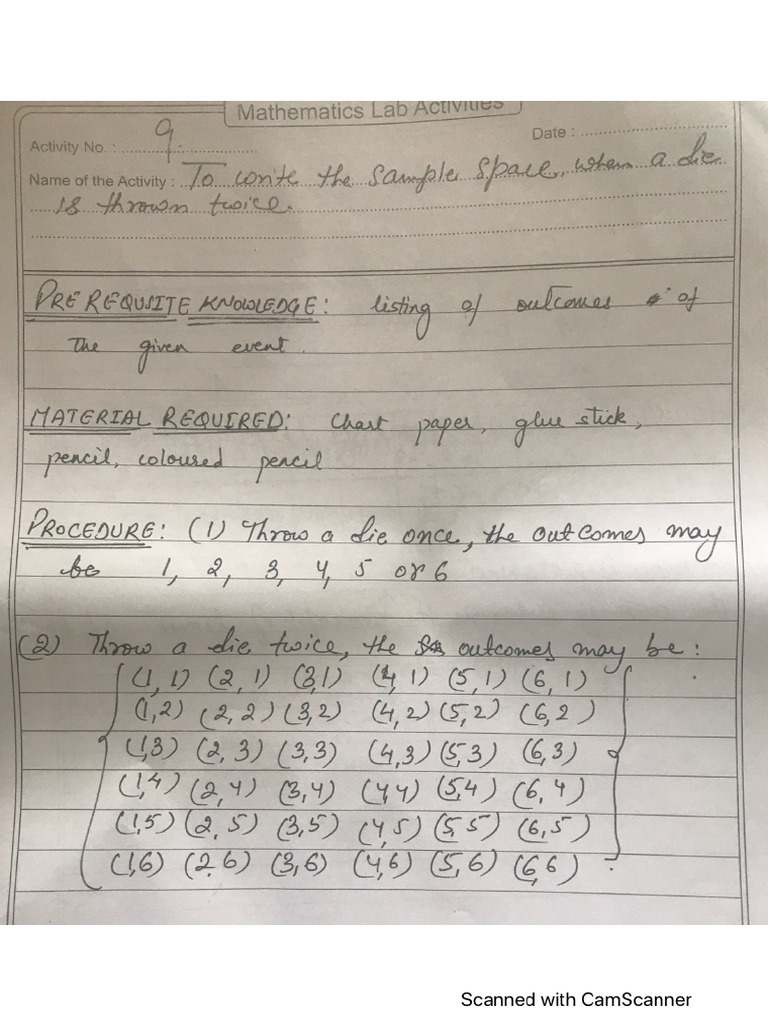 Mathematics Lab Activities
Activity No. : 9.
Date :
Name of the Activity : To write the sample space, when a die
is thrown twice.
PREREQUSITE KNOWLEDGE: listing of outcomes of
the given event.
MATERIAL REQUIRED: Chart paper, glue stick,
pencil, coloured pencil
PROCEDURE: (1) Throw a die once, the outcomes may
be 1, 2, 3, 4, 5 or 6
(2) Throw a die twice, the outcomes may be:
{ (1, 1) (2, 1) (3,1) (4, 1) (5, 1) (6, 1) }
(1,2) (2,2) (3,2) (4,2) (5,2) (6,2)
(1,3) (2,3) (3,3) (4,3) (5,3) (6,3)
(1,4) (2,4) (3,4) (4,4) (5,4) (6,4)
(1,5) (2,5) (3,5) (4,5) (5,5) (6,5)
(1,6) (2,6) (3,6) (4,6) (5,6) (6,6)
Scanned with CamScanner